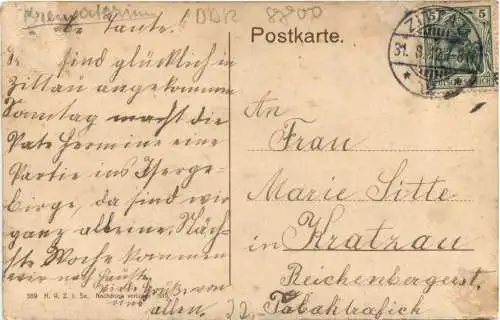 Krematorium
DDR 8800
Postkarte.
ZITTAU
31. 8. 12. 7-8
5
DEUTSCHES REICH
Tante!
sind glücklich in
Zittau angekommen
Sonntag macht die
Pate Hermine eine
Partie ins Iserge-
birge, da sind wir
ganz alleine. Näch-
ste Woche kommen
wir nach Hause
Gruß von
allen.
An
Frau
Marie Sitte
in Kratzau
Reichenbergerst.
Tabaktrafick
22.
559 H. G. Z. i. Sa. Nachdruck verboten